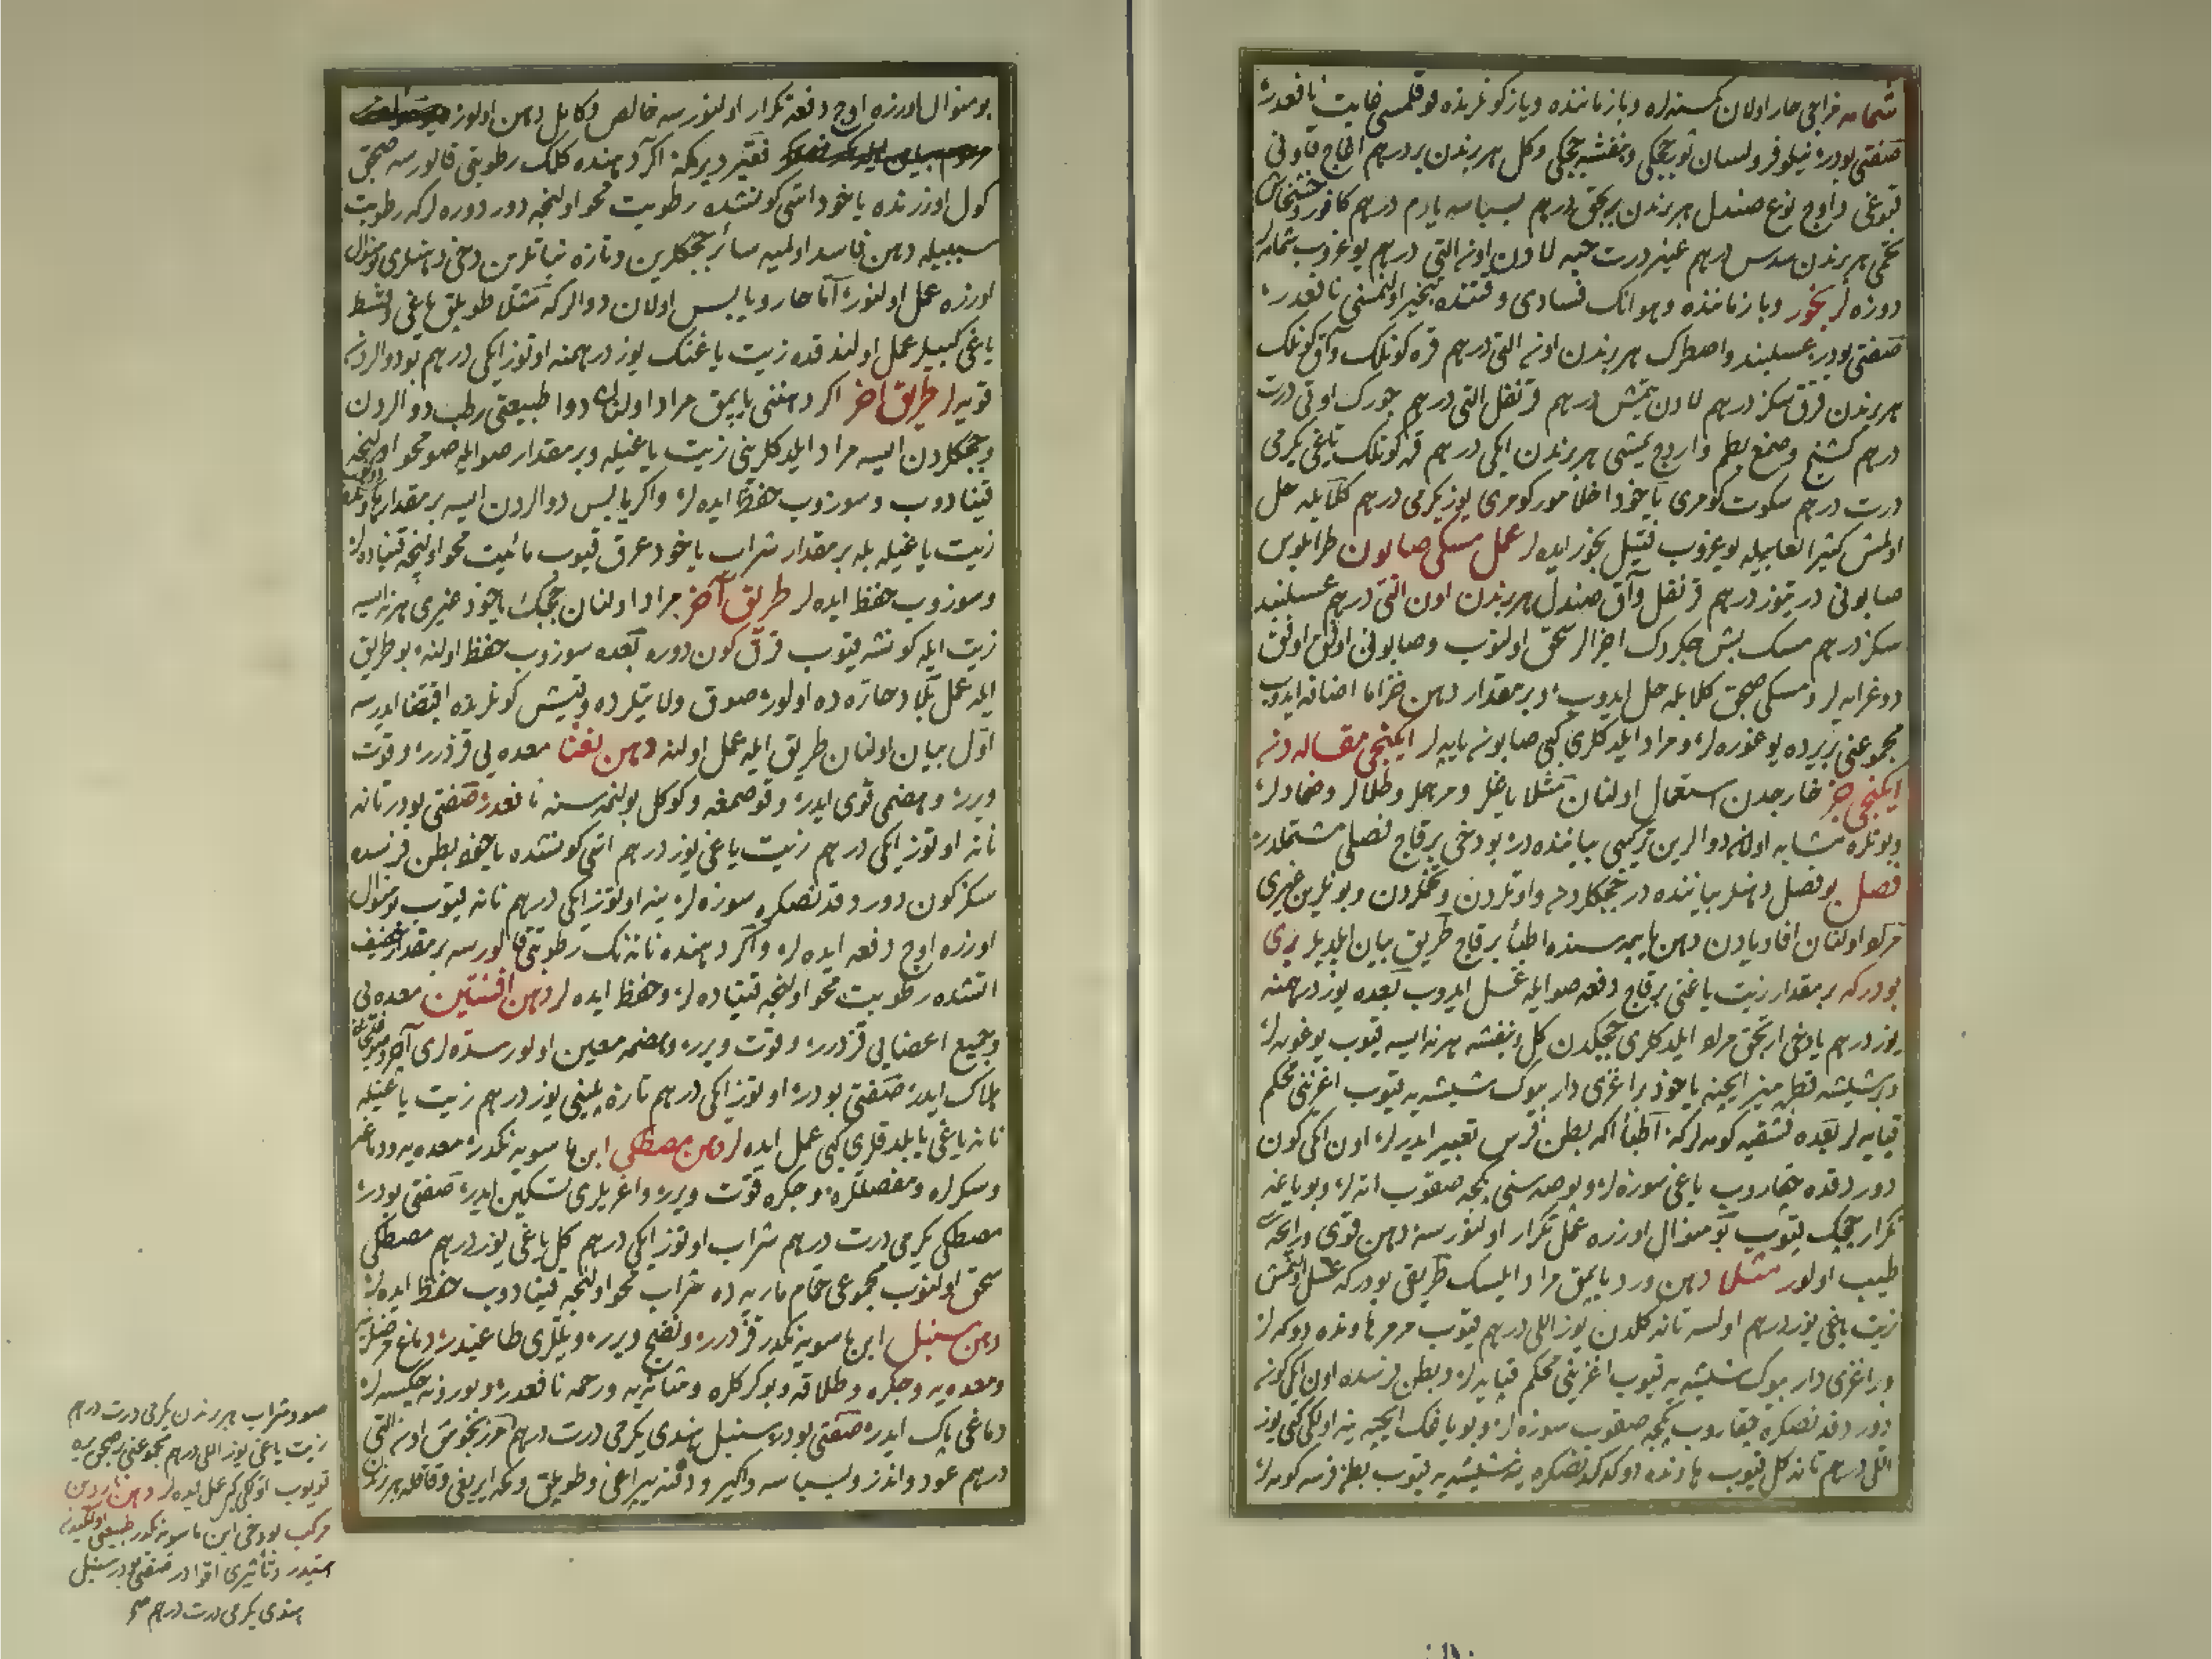 شمامه مزاجی حار اولان كمسنه لره وباز ماننده وياز كونلرنده قوقلمسی غايت نافعدر
صنعتی بودر نيلوفر ولسان ثور چچكی وبنفشه چچكی وكل هر برندن بر درهم اغاج قاونی
قبوغی واوچ نوع صندل هر برندن بر بچق درهم بسباسه يارم درهم كافور وخشخاش
تخمی هر برندن سدس درهم عنبر درت حبه لادن اون التی درهم يوغروب شمامه لر
دوزه لر بخور وبا زماننده وهوانك فسادی وقتنده تبخير اولنمسی نافعدر
صنعتی بودر عسلبند واصطرك هر برندن اون التی درهم قره كونلك وآق كونلك
هر برندن قرق سكز درهم لادن يتمش درهم قرنفل التی درهم چورك اوتی درت
درهم كشنيج وصمغ بطم واردج يمشی هر برندن ايكی درهم قره كونلك ياغی يكرمی
درت درهم سكوت كومری ياخود اخلامور كومری يوز يكرمی درهم كلابله حل
اولمش كثيرا لعابيله يوغروب فتيل بخور ايده لر عمل مسكی صابون طرابلوس
صابونی درتيوز درهم قرنفل وآق صندل هر برندن اون التی درهم عسلبند
سكز درهم مسك بش چكردك اجزالر سحق اولنوب وصابونی اوفق اوفق
دوغرايه لر ومسكی صحيق كلابله حل ايدوب وبر مقدار دهن خزاما اضافه ايدوب
مجموعنی بر يرده يوغوره لر ومراد ايلدكلری كبی صابونه ياپه لر ايكنجی مقاله دنه
ايكنجی جز خارجدن استعمال اولنان مثلا ياغلر ومرهملر وطلالر وضمادلر
وبونلره مشابه اولان دوالرين تركيبی بياننده در بو دخی بر قاچ فصلی مشتملدر
فصل بو فصل دهنلر بياننده در چچكلردن واوتلردن وتخملردن وبونلرين غيری
مركب اولنان افاويادن دهن ياپمسنده اطبا بر قاچ طريق بيان ايلديلر بری
بودركه بر مقدار زيت ياغنی بر قاچ دفعه صو ايله غسل ايدوب بعده يوز درهمنه
يوز درهم يا دخی ارتجق مراد ايلدكلری چچكدن كل وبنفشه هر نه ايسه قيوب يوغوره لر
وبر شيشه قطرميز ايچنه ياخود بر اغزی دار بيوك شيشه يه قيوب اغزينی محكم
قپايه لر بعده تشقيه كومه لركه اطبا اكه بطن فرس تعبير ايدرلر اون ايكی كون
دورد قده چقاروب ياغی سوزه لر وپوصه سنی پكجه صقوب اته لر وبو ياغه
تكرار چچك قيوب بو منوال اوزره عمل تكرار اولنورسه دهن قوی ورايحه سی
طيب اولور مثلا دهن ورد ياپمق مراد ايلسك طريقی بودركه غسل اولنمش
زيت ياغی يوز درهم اولسه تازه كلدن يوز اللی درهم قيوب مرمر هاونده دوكه لر
وبر اغزی دار بيوك شيشه يه قيوب اغزينی محكم قپايه لر وبطن فرسده اون ايكی كون
دورد قدنصكره چقاروب پكجه صقوب سوزه لر وبو ياغك ايچنه ينه اولكی كبی يوز
اللی درهم تازه كل قيوب هاونده دوكدكدنصكره ينه شيشه يه قيوب بطن فرسه كومه لر
بو منوال اوزره اوچ دفعه تكرار اولنورسه خالص وكامل دهن اولور
فقير ديركه اكر دهنده كلك رطوبتی قالورسه صجق
كول اوزرنده ياخود اسی كونشده رطوبت محو اولنجه دوردوره لركه رطوبت
سببيله دهن فاسد اولميه سائر چچكلرين وتازه نباتلرين دخی دهنلری بو منوال
اوزره عمل اولنور اما حار ويابس اولان دوالركه مثلا طوبلق ياغی وقسط
ياغی كبيلر عمل اولندقده زيت ياغنك يوز درهمنه اوتوز ايكی درهم بو دوالردن
قويه لر طريق اخر اكر دهننی ياپمق مراد اولنان دوا طبيعتی رطب دوالردن
وچچكلردن ايسه مراد ايلدكلرينی زيت ياغيله وبر مقدار صو ايله صو محو اولنجه
قينادوب وسوزوب حفظ ايده لر واكر يابس دوالردن ايسه بر مقدار
زيت ياغيله بله بر مقدار شراب ياخود عرق قيوب مائيت محو اولنجه قيناده لر
وسوزوب حفظ ايده لر طريق آخر مراد اولنان چچك ياخود غيری هر نه ايسه
زيت ايله كونشه قيوب قرق كون دوره بعده سوزوب حفظ اولنه بو طريق
ايله عمل بلاد حاره ده اولور صوق ولايتلرده وقيش كونلرنده اقتضا ايدرسه
اول بيان اولنان طريق ايله عمل اولنه دهن نعنا معده يی قزدرر وقوت
ويرر وهضمی قوی ايدر وقوصمغه وكوكل بولنمه سنه نافعدر صنعتی بودر تازه
نانه اوتوز ايكی درهم زيت ياغی يوز درهم اسی كونشده ياخود بطن فرسده
سكز كون دورد قدنصكره سوزه لر ينه اوتوز ايكی درهم نانه قيوب بو منوال
اوزره اوچ دفعه ايده لر واكر دهنده نانه نك رطوبتی قالورسه بر مقدار خفيف
اتشده رطوبت محو اولنجه قيناده لر وحفظ ايده لر دهن افسنتين معده يی
وجميع اعضايی قزدرر وقوت ويرر وهضمه معين اولور سده لری آچر
هلاك ايدر صنعتی بودر اوتوز ايكی درهم تازه پلينی يوز درهم زيت ياغيله
نانه ياغی ياپلدقلری كبی عمل ايده لر دهن مصطكی ابن ماسويه نكدر معده يه ودماغه
وسكرلره ومفصللره وجكره قوت ويرر واغريلری تسكين ايدر صنعتی بودر
مصطكی يكرمی درت درهم شراب اوتوز ايكی درهم كل ياغی يوز درهم مصطكی
سحق اولنوب مجموعی حمام ماريه ده شراب محو اولنجه قينادوب حفظ ايده لر
دهن سنبل ابن ماسويه نكدر قزدرر ونضج ويرر ويللری طاغيدر دماغ
ومعده يه وجكره وطلاقه وبوكركلره ومثانه يه ورحمه نافعدر وبورنه چكسه لر
دماغی پاك ايدر صنعتی بودر سنبل هندی يكرمی درت درهم مرزنجوش اون التی
درهم عود واندز وبسباسه واكير ودفنه يپراغی وطوپلق وقاقله هر برندن
صو وشراب هر برندن يكرمی درت درهم
زيت ياغی يوز اللی درهم مجموعنی بر يره
قويوب اولكی كبی عمل ايده لر دهن ناردين
مركب بو دخی ابن ماسويه نكدر طبيعتی اولكيدن
وتأثيری اقوادر صنعتی بودر سنبل
هندی يكرمی درت درهم صح